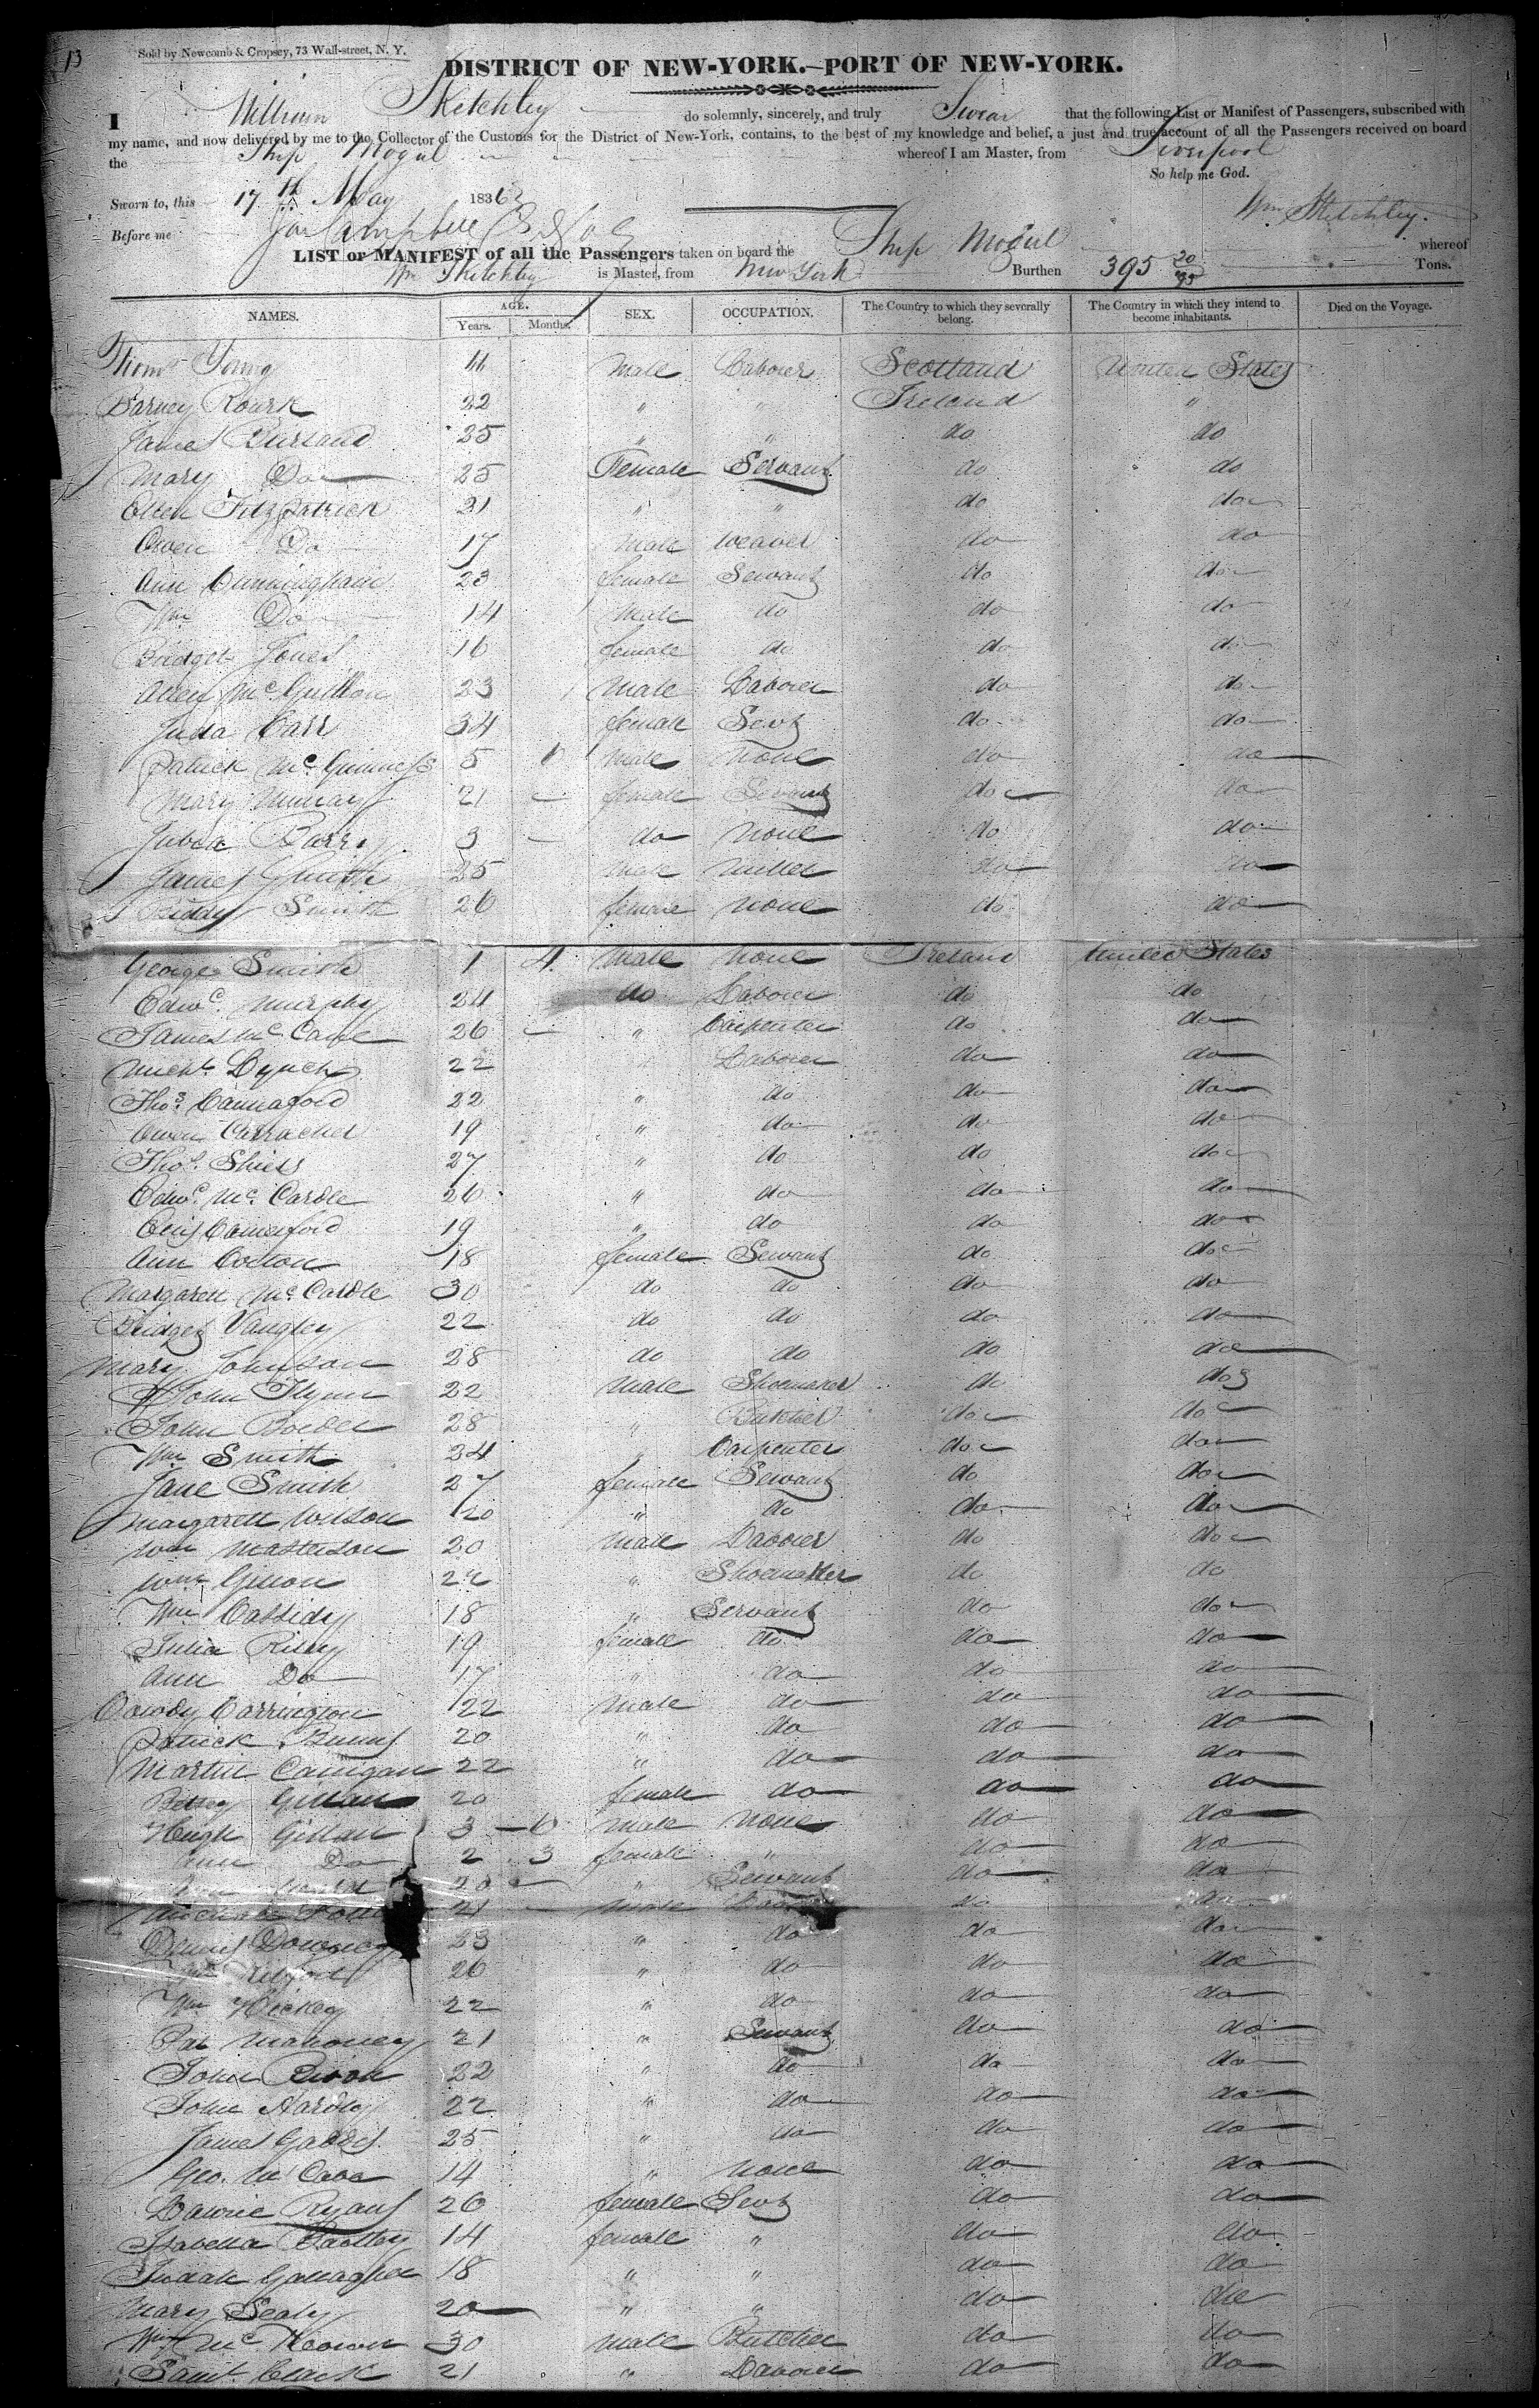 13
Sold by Newcomb & Cropsey, 73 Wall-street, N. Y.
DISTRICT OF NEW-YORK.—PORT OF NEW-YORK.
I William Sketchley do solemnly, sincerely, and truly Swear that the following List or Manifest of Passengers, subscribed with
my name, and now delivered by me to the Collector of the Customs for the District of New-York, contains, to the best of my knowledge and belief, a just and true account of all the Passengers received on board
the Ship Mogul whereof I am Master, from Liverpool
So help me God.
Sworn to, this 17th May 1836
Wm Sketchley.
Before me Campbell
LIST or MANIFEST of all the Passengers taken on board the Ship Mogul whereof
Wm Sketchley is Master, from New York Burthen 395 20/95 Tons.
NAMES. AGE. SEX. OCCUPATION. The Country to which they severally belong. The Country in which they intend to become inhabitants. Died on the Voyage.
Years. Months.
Thoms Young Male Laborer Scotland United States
Barney Rourk 22 " " Ireland "
James 25 " " do do
Mary Do 25 Female Servant do do
Ellen Fitzpatrick 21 " " do do
Owen Do 17 Male Weaver do do
Ann Cunningham 23 female Servant do do
Wm Do 14 Male do do do
Bridget Jones 16 female do do do
23 Male Laborer do do
Juda Carr 34 female Servt do do
Patrick McGuinness 5 Male None do do
Mary Murray 21 female Servant do do
Barry 3 do None do do
James Smith 25 Male Miller do do
Biddy Smith 26 female None do do
George Smith 1 4 Male None Ireland United States
Edwd. Murphy 24 do Laborer do do
James McCabe 26 " Carpenter do do
Michl. Lynch 22 " Laborer do do
Thos. 22 " do do do
Owen 19 " do do do
Thos. Shiels 27 " do do do
Edwd. McCardle 26 " do do do
19 " do do do
Ann 18 female Servant do do
Margarett McCardle 30 do do do do
Bridget 22 do do do do
Mary Johnson 28 do do do do
John Flynn 22 Male Shoemaker do do
John 28 " Butcher do do
Wm Smith 24 " Carpenter do do
Jane Smith 27 female Servant do do
Margarett Wilson 20 " do do do
Wm Masterson 20 Male Laborer do do
Wm 22 " Shoemaker do do
Wm Cassidy 18 " Servant do do
Julia Riley 19 female do do do
Ann Do 17 " do do do
Carrington 22 Male do do do
Patrick Burns 20 " do do do
Martin 22 " do do do
Betsey Gillan 20 female do do do
Hugh Gillan 3 6 Male None do do
Ann Do 2 3 female " do do
20 " Servant do do
Male do
Dennis Downey 23 " do do do
Wm 26 " do do do
Wm Hickey 22 " do do do
Pat Mahoney 21 " Servant do do
John 22 " do do do
John Hardy 22 " do do do
James Gaddis 25 " do do do
Geo. McCabe 14 " None do do
Ryans 26 female Servt do do
Isabella 14 female " do do
Judah Gallagher 18 " " do do
Mary Sealy 20 " " do do
Wm McKeown 30 Male Butcher do do
Saml. Clark 21 " Laborer do do